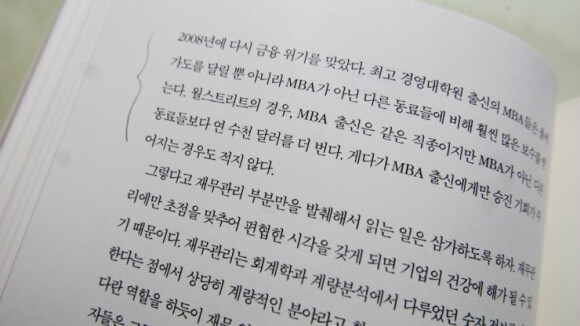 2008년에 다시 금융 위기를 맞았다. 최고 경영대학원 출신의 MBA들은
가도를 달릴 뿐 아니라 MBA가 아닌 다른 동료들에 비해 훨씬 많은 보수를
는다. 월스트리트의 경우, MBA 출신은 같은 직종이지만 MBA가 아닌 다른
동료들보다 연 수천 달러를 더 번다. 게다가 MBA 출신에게만 승진 기회가 주
어지는 경우도 적지 않다.
그렇다고 재무관리 부분만을 발췌해서 읽는 일은 삼가하도록 하자. 재무관
리에만 초점을 맞추어 편협한 시각을 갖게 되면 기업의 건강에 해가 될 수 있
기 때문이다. 재무관리는 회계학과 계량분석에서 다루었던 숫자
한다는 점에서 상당히 계량적인 분야라고
다란 역할을 하듯이 재무
자들은